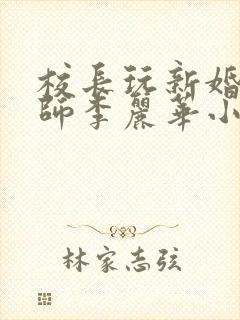 校長玩新婚
師李麗華小
林家志弦